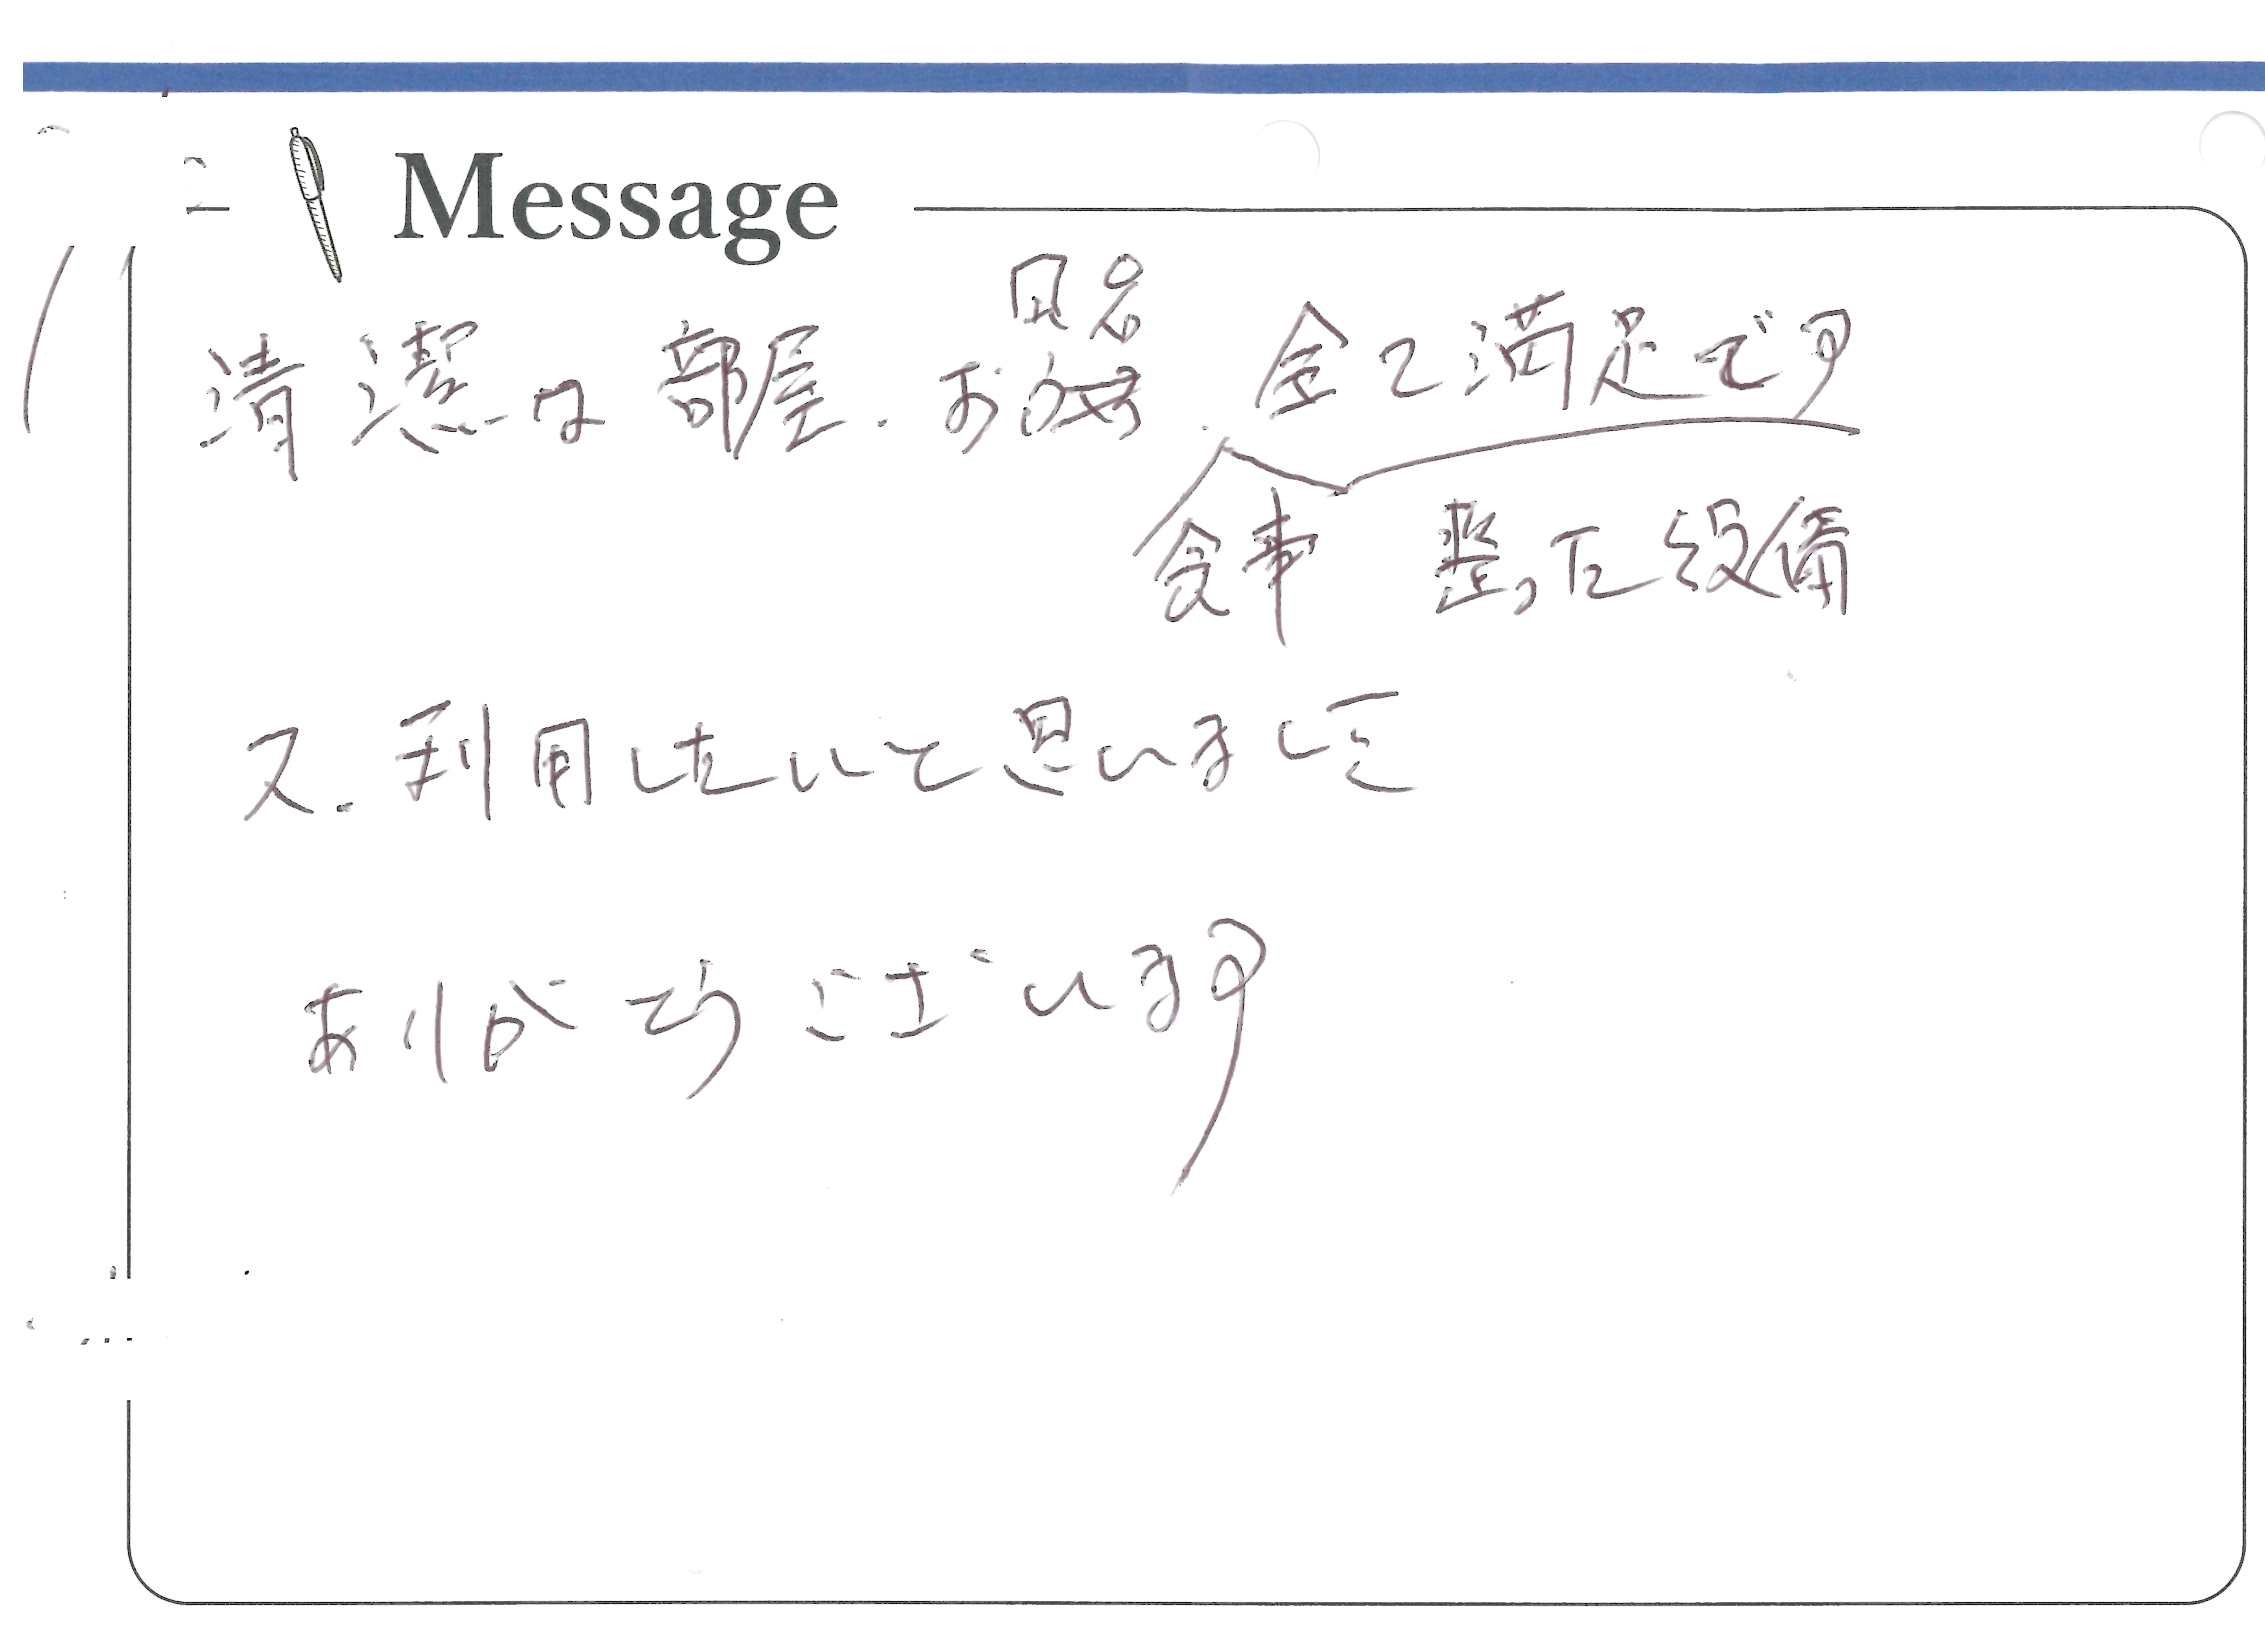 Message
清潔な部屋.お風呂.全て満足です
食事 整った設備
又.利用したいと思いました
ありがとうございます